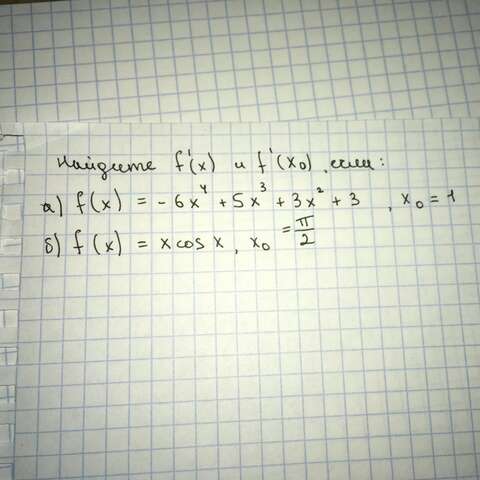 Найдите f'(x) и f'(x₀), если:
а) f(x) = -6x⁴ + 5x³ + 3x² + 3 , x₀ = 1
б) f(x) = x cos x, x₀ = π/2